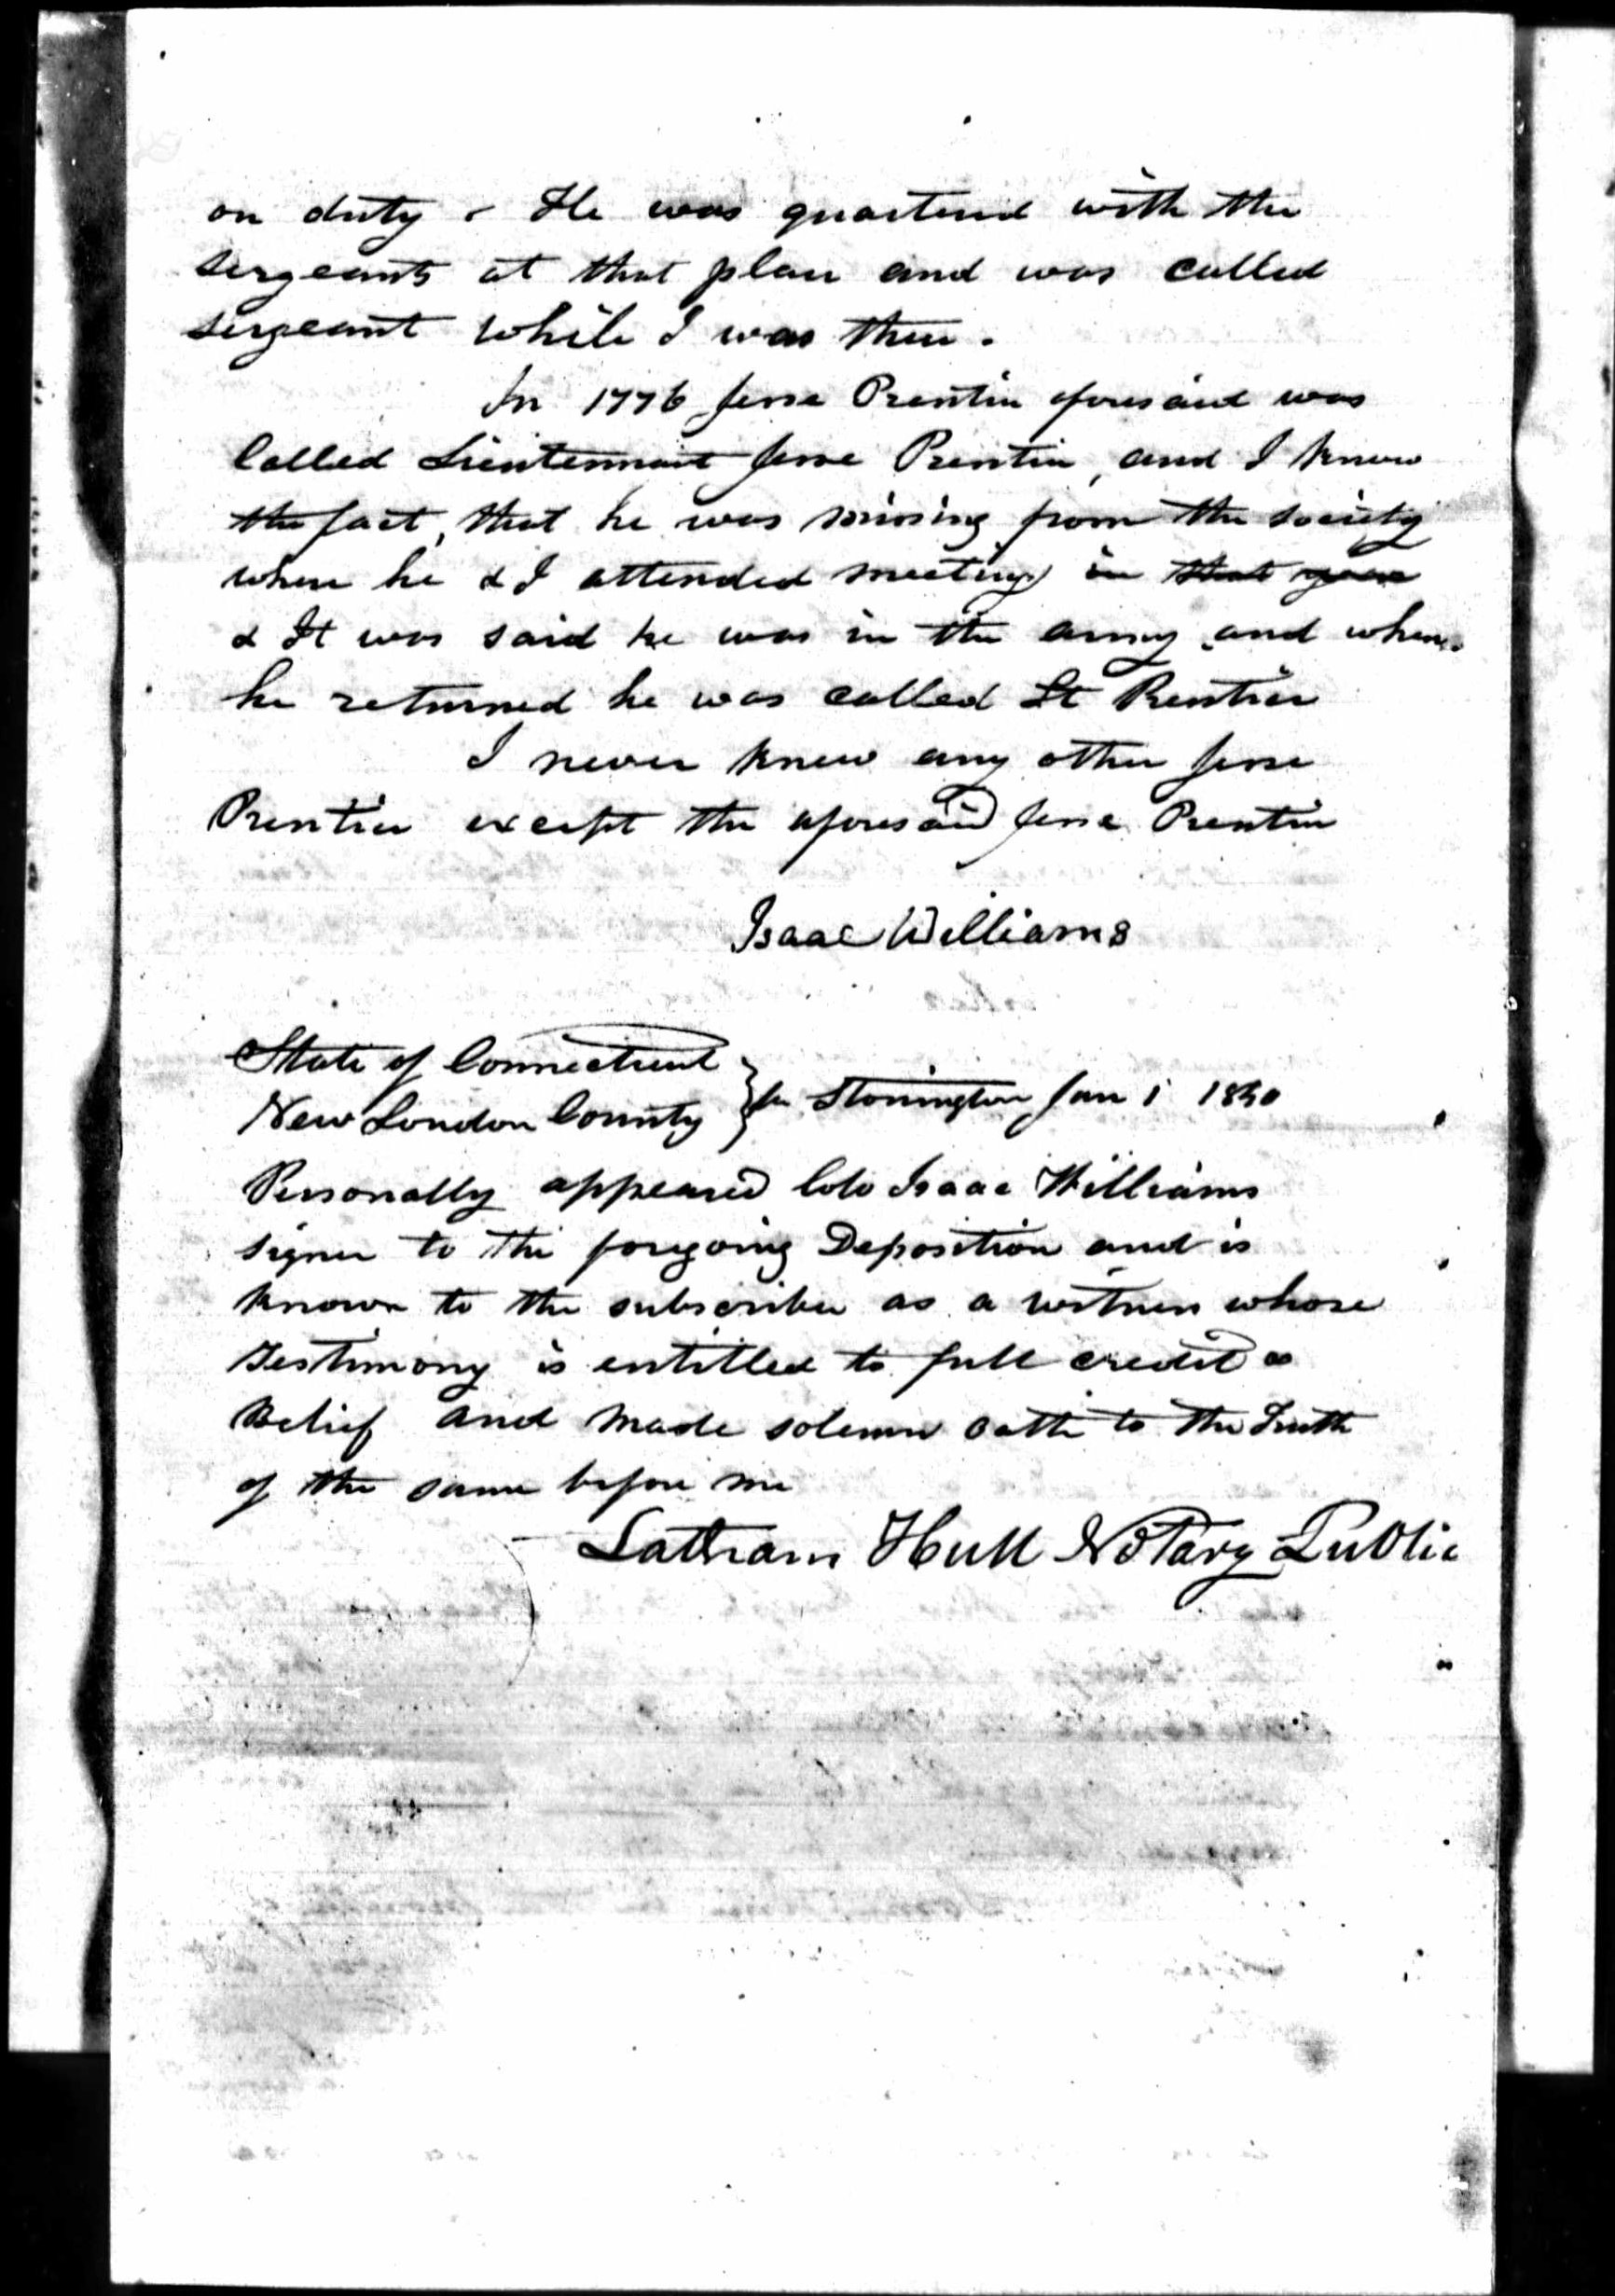 on duty & He was quartered with the
sergeants at that place and was called
sergeant while I was there.
In 1776 Jesse Prentice aforesaid was
Called Lieutennant Jesse Prentice, and I know
the fact, that he was missing from the society
where he & I attended meeting in that year
& It was said he was in the army and when
he returned he was called Lt Prentice
I never knew any other Jesse
Prentice except the aforesaid Jesse Prentice
Isaac Williams
State of Connecticut
New London County } ss Stonington Jan 1 18
Personally appeared Colo Isaac Williams
signer to the foregoing Deposition and is
known to the subscriber as a witness whose
Testimony is entitled to full credit &
Belief and made solemn oath to the Truth
of the same before me
Latham Hull Notary Public